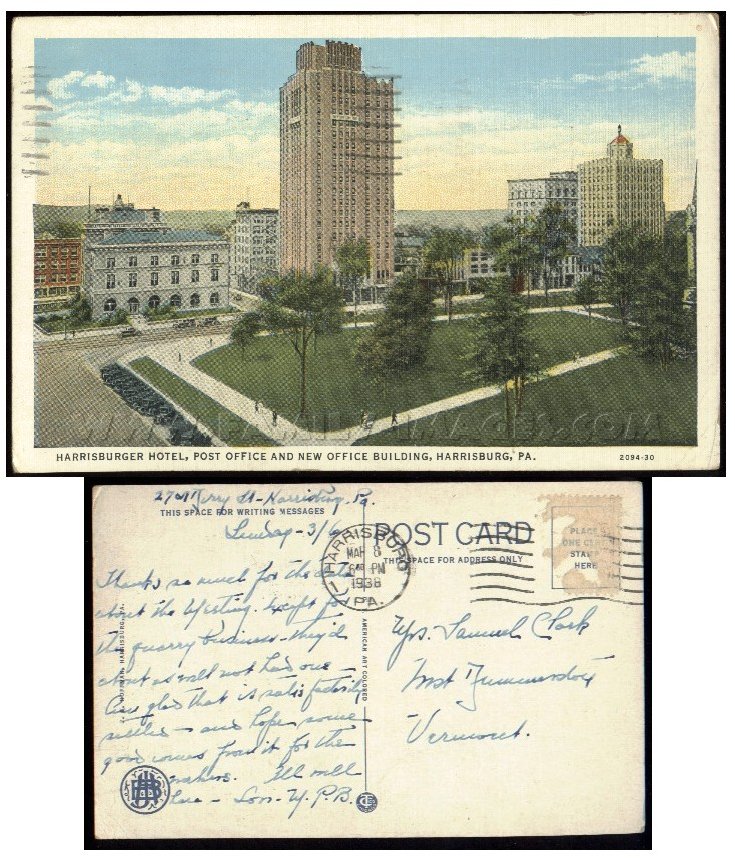 WWW.FAMILY-IMAGES.COM
HARRISBURGER HOTEL, POST OFFICE AND NEW OFFICE BUILDING, HARRISBURG, PA.
2094-30
St - Harrisburg, Pa.
THIS SPACE FOR WRITING MESSAGES
Sunday - 3/6
POST CARD
THIS SPACE FOR ADDRESS ONLY
HARRISBURG
MAR 8
6 PM
1938
PA.
PLACE
ONE CENT
STAMP
HERE
Thanks so much for the data
about the Meeting. Except for
the quarry business - they'd
about as well not had one -
glad that is satisfactorily
settled - and hope some
good comes from it for the
Ill will
- Son - W. P. B.
HOFFMAN, HARRISBURG, PA.
AMERICAN ART COLORED
Mrs. Samuel Clark
West Dummerston
Vermont.